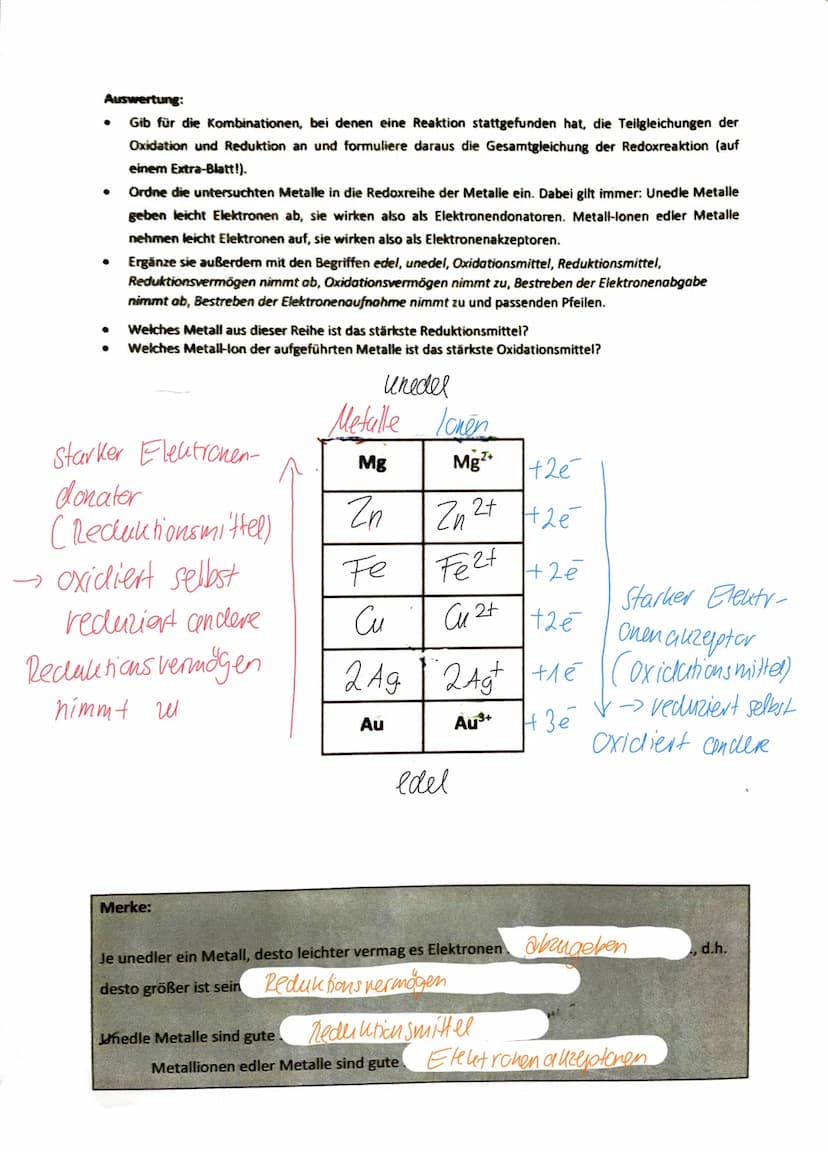 Auswertung:
• Gib für die Kombinationen, bei denen eine Reaktion stattgefunden hat, die Teilgleichungen der
Oxidation und Reduktion an und formuliere daraus die Gesamtgleichung der Redoxreaktion (auf
einem Extra-Blatt!).
• Ordne die untersuchten Metalle in die Redoxreihe der Metalle ein. Dabei gilt immer: Unedle Metalle
geben leicht Elektronen ab, sie wirken also als Elektronendonatoren. Metall-Ionen edler Metalle
nehmen leicht Elektronen auf, sie wirken also als Elektronenakzeptoren.
• Ergänze sie außerdem mit den Begriffen edel, unedel, Oxidationsmittel, Reduktionsmittel,
Reduktionsvermögen nimmt ab, Oxidationsvermögen nimmt zu, Bestreben der Elektronenabgabe
nimmt ab, Bestreben der Elektronenaufnahme nimmt zu und passenden Pfeilen.
• Welches Metall aus dieser Reihe ist das stärkste Reduktionsmittel?
• Welches Metall-Ion der aufgeführten Metalle ist das stärkste Oxidationsmittel?
unedel
Metalle Ionen
Mg Mg²⁺ +2e⁻
Zn Zn²⁺ +2e⁻
Fe Fe²⁺ +2e⁻
Cu Cu²⁺ +2e⁻
2Ag 2Ag⁺ +1e⁻
Au Au³⁺ +3e⁻
edel
Starker Elektronen-
donater
(Reduktionsmittel)
→ oxidiert selbst
reduziert andere
Reduktionsvermögen
nimmt zu
Starker Elektr-
onenakzeptor
(Oxidationsmittel)
→ reduziert selbst
oxidiert andere
Merke:
Je unedler ein Metall, desto leichter vermag es Elektronen abzugeben, d.h.
desto größer ist sein Reduktionsvermögen
Unedle Metalle sind gute Reduktionsmittel
Metallionen edler Metalle sind gute Elektronenakzeptoren